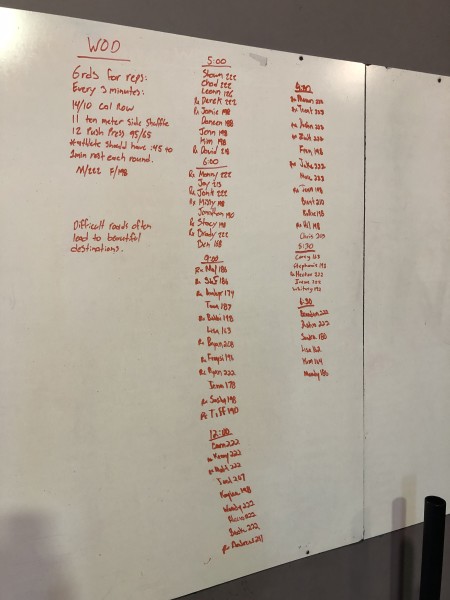 WOD
6rds for reps:
Every 3 minutes:
14/10 cal Row
11 ten meter side shuffle
12 Push Press 95/65
*athlete should have :45 to
1min rest each round.
M/222 F/198
Difficult roads often
lead to beautiful
destinations.
5:00
Shawn 222
Chad 222
Leann 186
Rx Derek 222
Rx Jamie 198
Doreen 188
Jenn 198
Kim 198
Rx David
6:00
Rx Manny 222
Jay 213
Rx 222
Rx Missy 198
Jonathan 190
Rx Stacy 198
Rx Brady 222
Deri 168
9:00
Rx Mal 186
Rx 186
Rx 174
Tom 187
Rx Bobbi 198
Lisa 163
Rx Bryan 208
Rx 196
Rx Ryan 222
Jenna 178
Rx 198
Rx Tiff 190
12:00
222
Rx Kenny 222
Rx Matt 222
Todd 207
Kaylea 198
Woody 222
222
222
Rx Andrew 211
4:00
222
Rx Trent 203
Rx 203
Rx 198
Fran 198
Rx Jake 222
223
Rx Jenn 198
Brent 222
Katie 198
Rx 198
Chris 203
5:30
Corey 163
Stephanie 193
Rx Hector 222
Irene 205
Whitney 192
6:30
Brandon 222
Justin 222
180
Lisa 162
Kim 164
Mandy 180